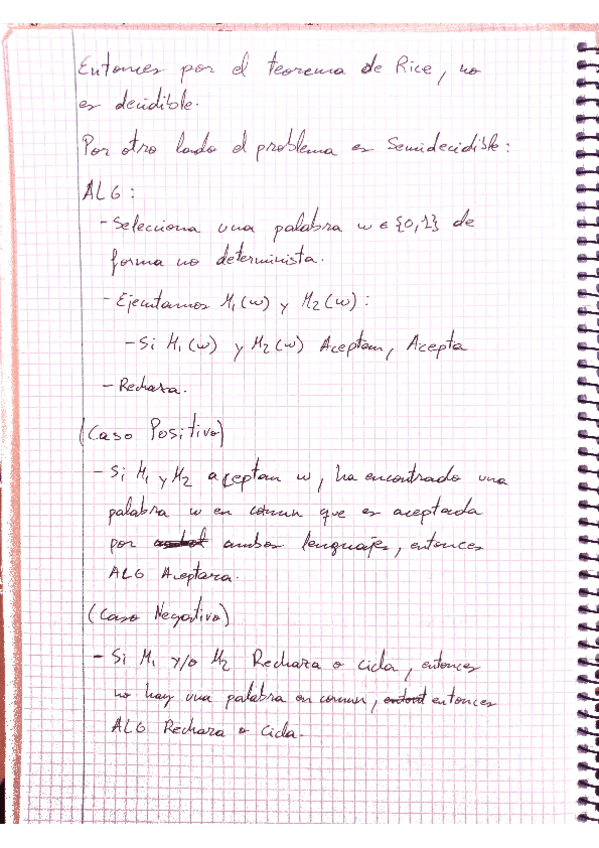 Entonces por el teorema de Rice, no
es decidible.
Por otro lado el problema es Semidecidible:
ALG:
- Selecciona una palabra w ∈ {0,1} de
forma no determinista.
- Ejecutamos M₁(w) y M₂(w):
- Si M₁(w) y M₂(w) Aceptan, Acepta
- Rechaza.
(Caso Positivo)
- Si M₁ y M₂ aceptan w, ha encontrado una
palabra w en común que es aceptada
por ambos lenguajes, entonces
ALG Aceptara.
(Caso Negativo)
- Si M₁ y/o M₂ Rechaza o cicla, entonces
no hay una palabra en comun, entonces
ALG Rechaza o Cicla.